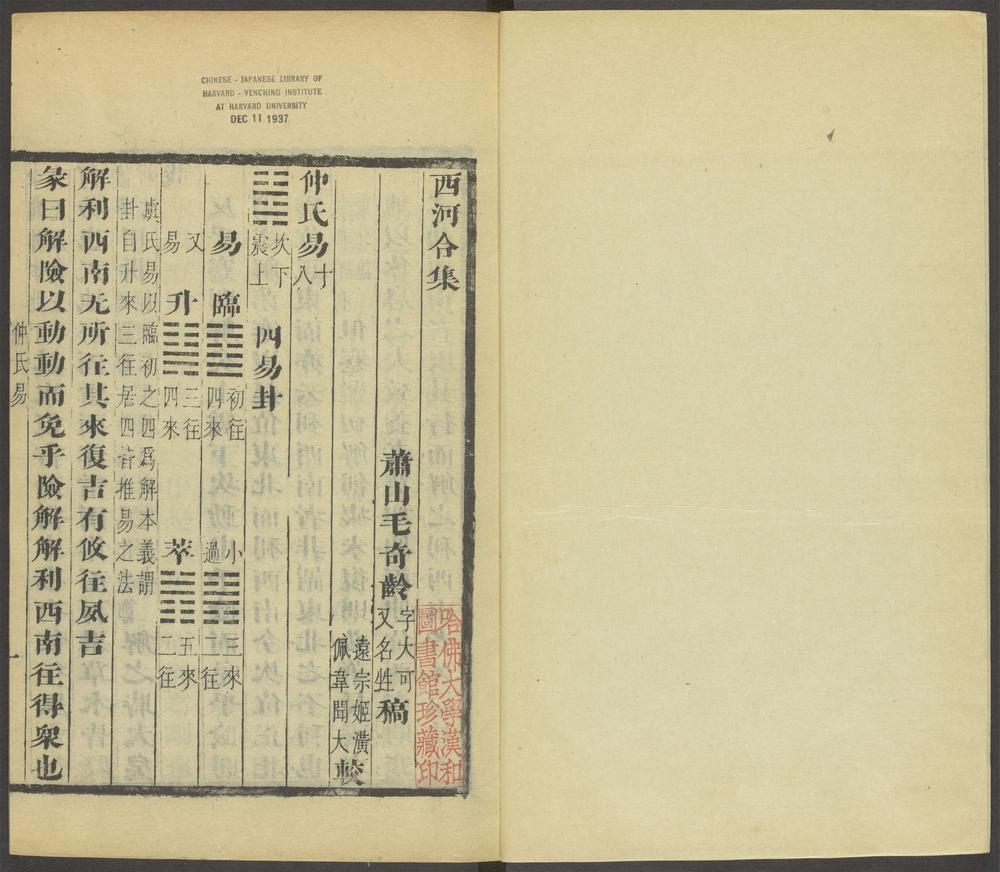 CHINESE - JAPANESE LIBRARY OF
HARVARD - YENCHING INSTITUTE
AT HARVARD UNIVERSITY
DEC 11 1937
西河合集
哈佛大學漢和
圖書館珍藏印
蕭山毛奇齡字大可又名甡稿
遠宗姬潢
佩韋聞大較
仲氏易十八
䷧坎下震上 四易卦
易 臨䷒初往四來 小過䷽三來二往
又易 升䷭三往四來 萃䷬五來二往
虞氏易以臨初之四爲解本義謂
卦自升來三往居四皆推易之法
解利西南无所往其來復吉有攸往夙吉
彖曰解險以動動而免乎險解解利西南往得衆也
仲氏易
一